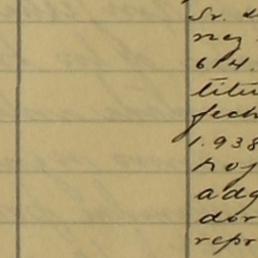 Sr. d
nez
614.
titu
fech
1.938
hoj
adq
dor
repr